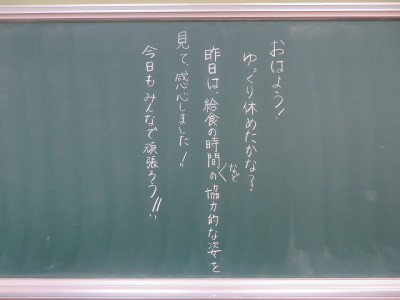 おはよう!
ゆっくり休めたかな?
昨日は、給食の時間などの協力的な姿を
見て、感心しました!
今日もみんなで頑張ろう!!